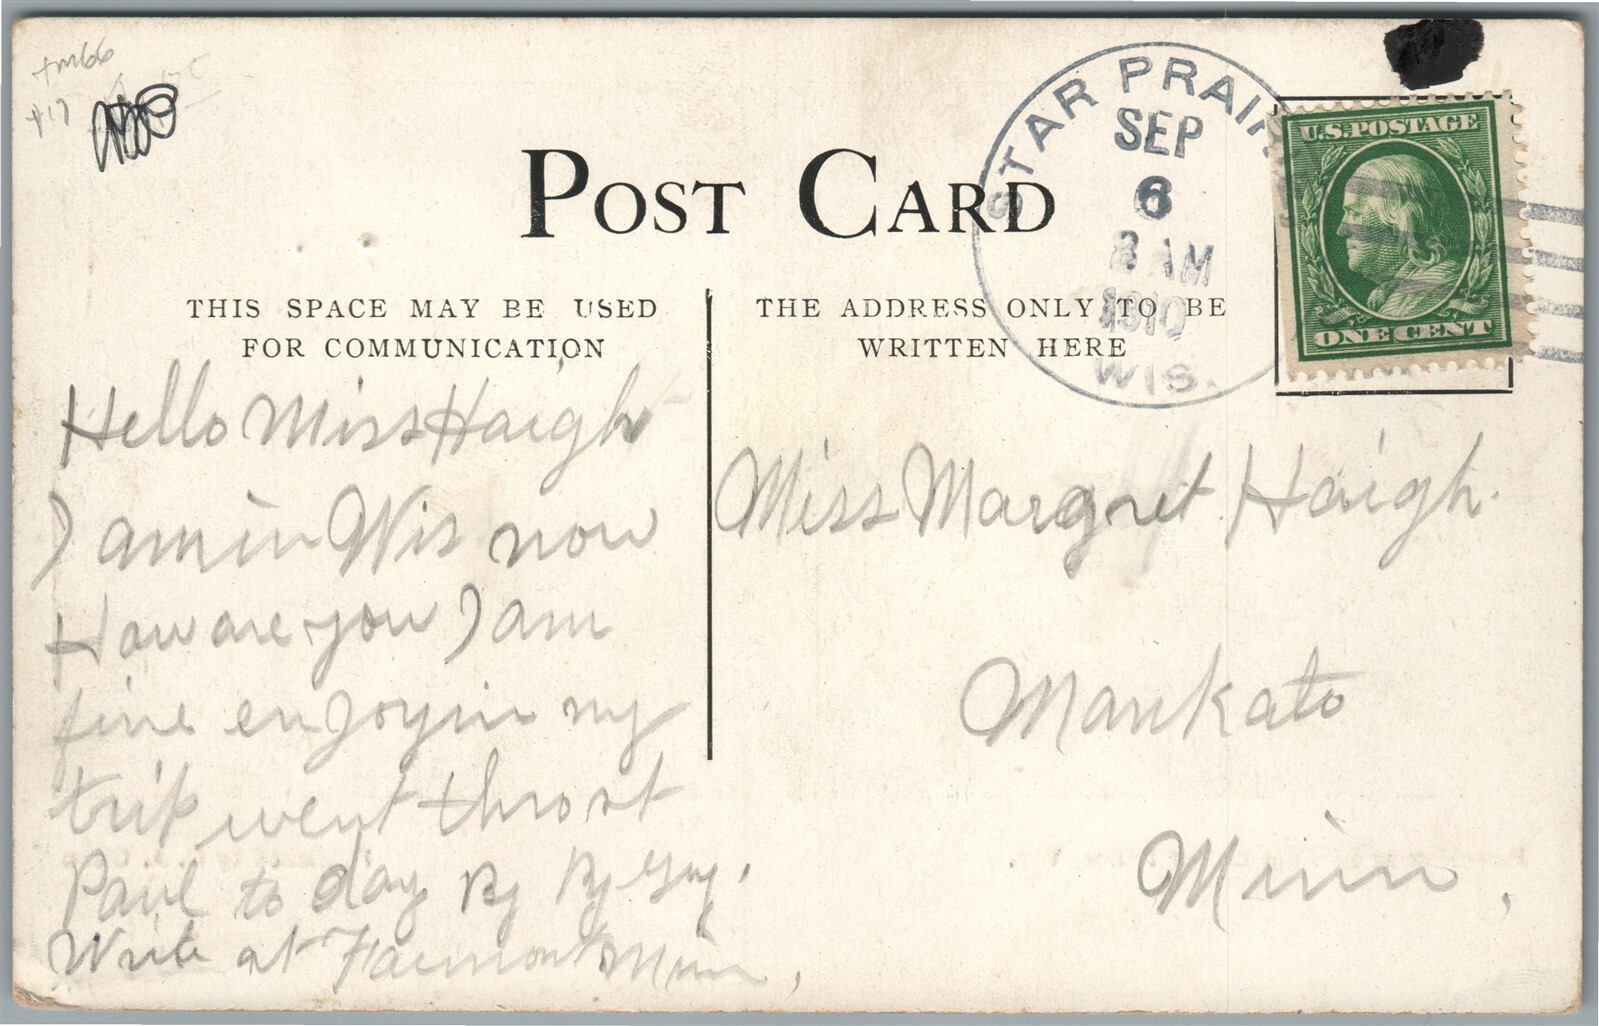 tm66
POST CARD
STAR PRAIRI
SEP
6
8 AM
1910
WIS.
U.S. POSTAGE
ONE CENT
THIS SPACE MAY BE USED
FOR COMMUNICATION
THE ADDRESS ONLY TO BE
WRITTEN HERE
Hello Miss Haigh
I am in Wis now
How are you I am
fine enjoyin my
trip went thro st
Paul to day By By
Write at Fairmont Minn,
Miss Margret Haigh.
Mankato
Minn,